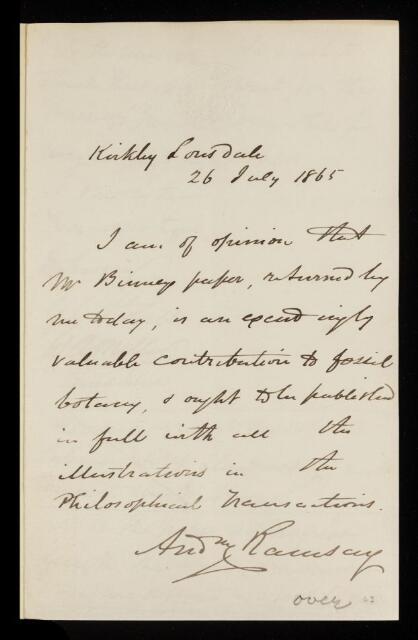 Kirkby Lonsdale
26 July 1865
I am of opinion that
Mr Binneys paper, returned by
me today, is an exceedingly
valuable contribution to fossil
botany, & ought to be published
in full with all the
illustrations in the
Philosophical Transactions.
Andw Ramsay
over